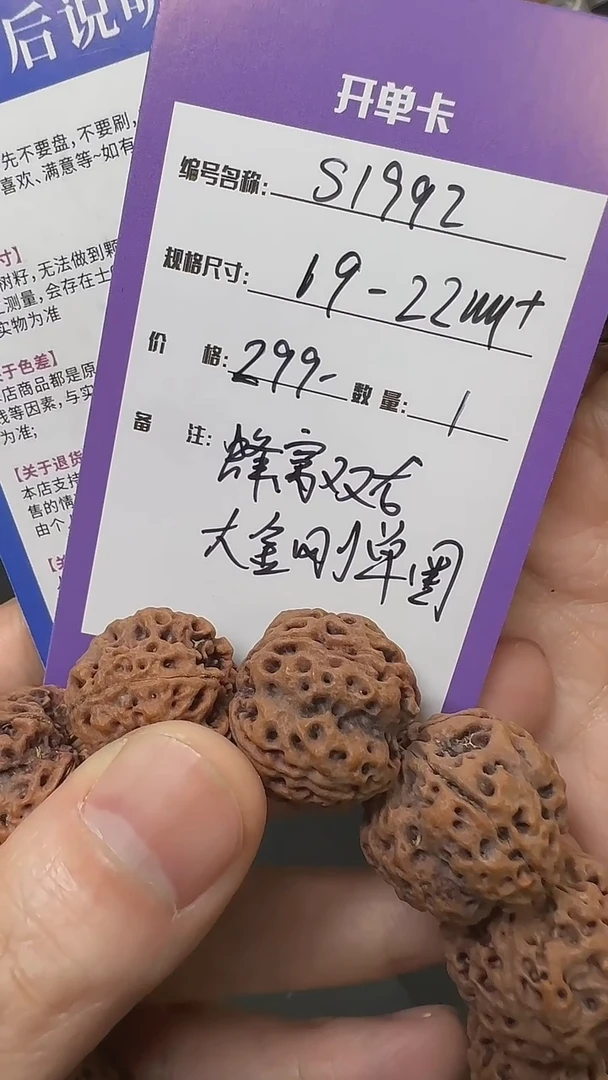 后说明
先不要盘,不要刷,
喜欢、满意等~如有
寸】
树籽,无法做到颗
测量,会存在土
实物为准
于色差】
店商品都是原
线等因素,与实
为准;
【关于退货
本店支持
售的情
由个
【关
开单卡
编号名称: S1992
规格尺寸: 19-22mm+
价 格: 299- 数量: 1
备 注: 蜂窝双右
大金刚单圈